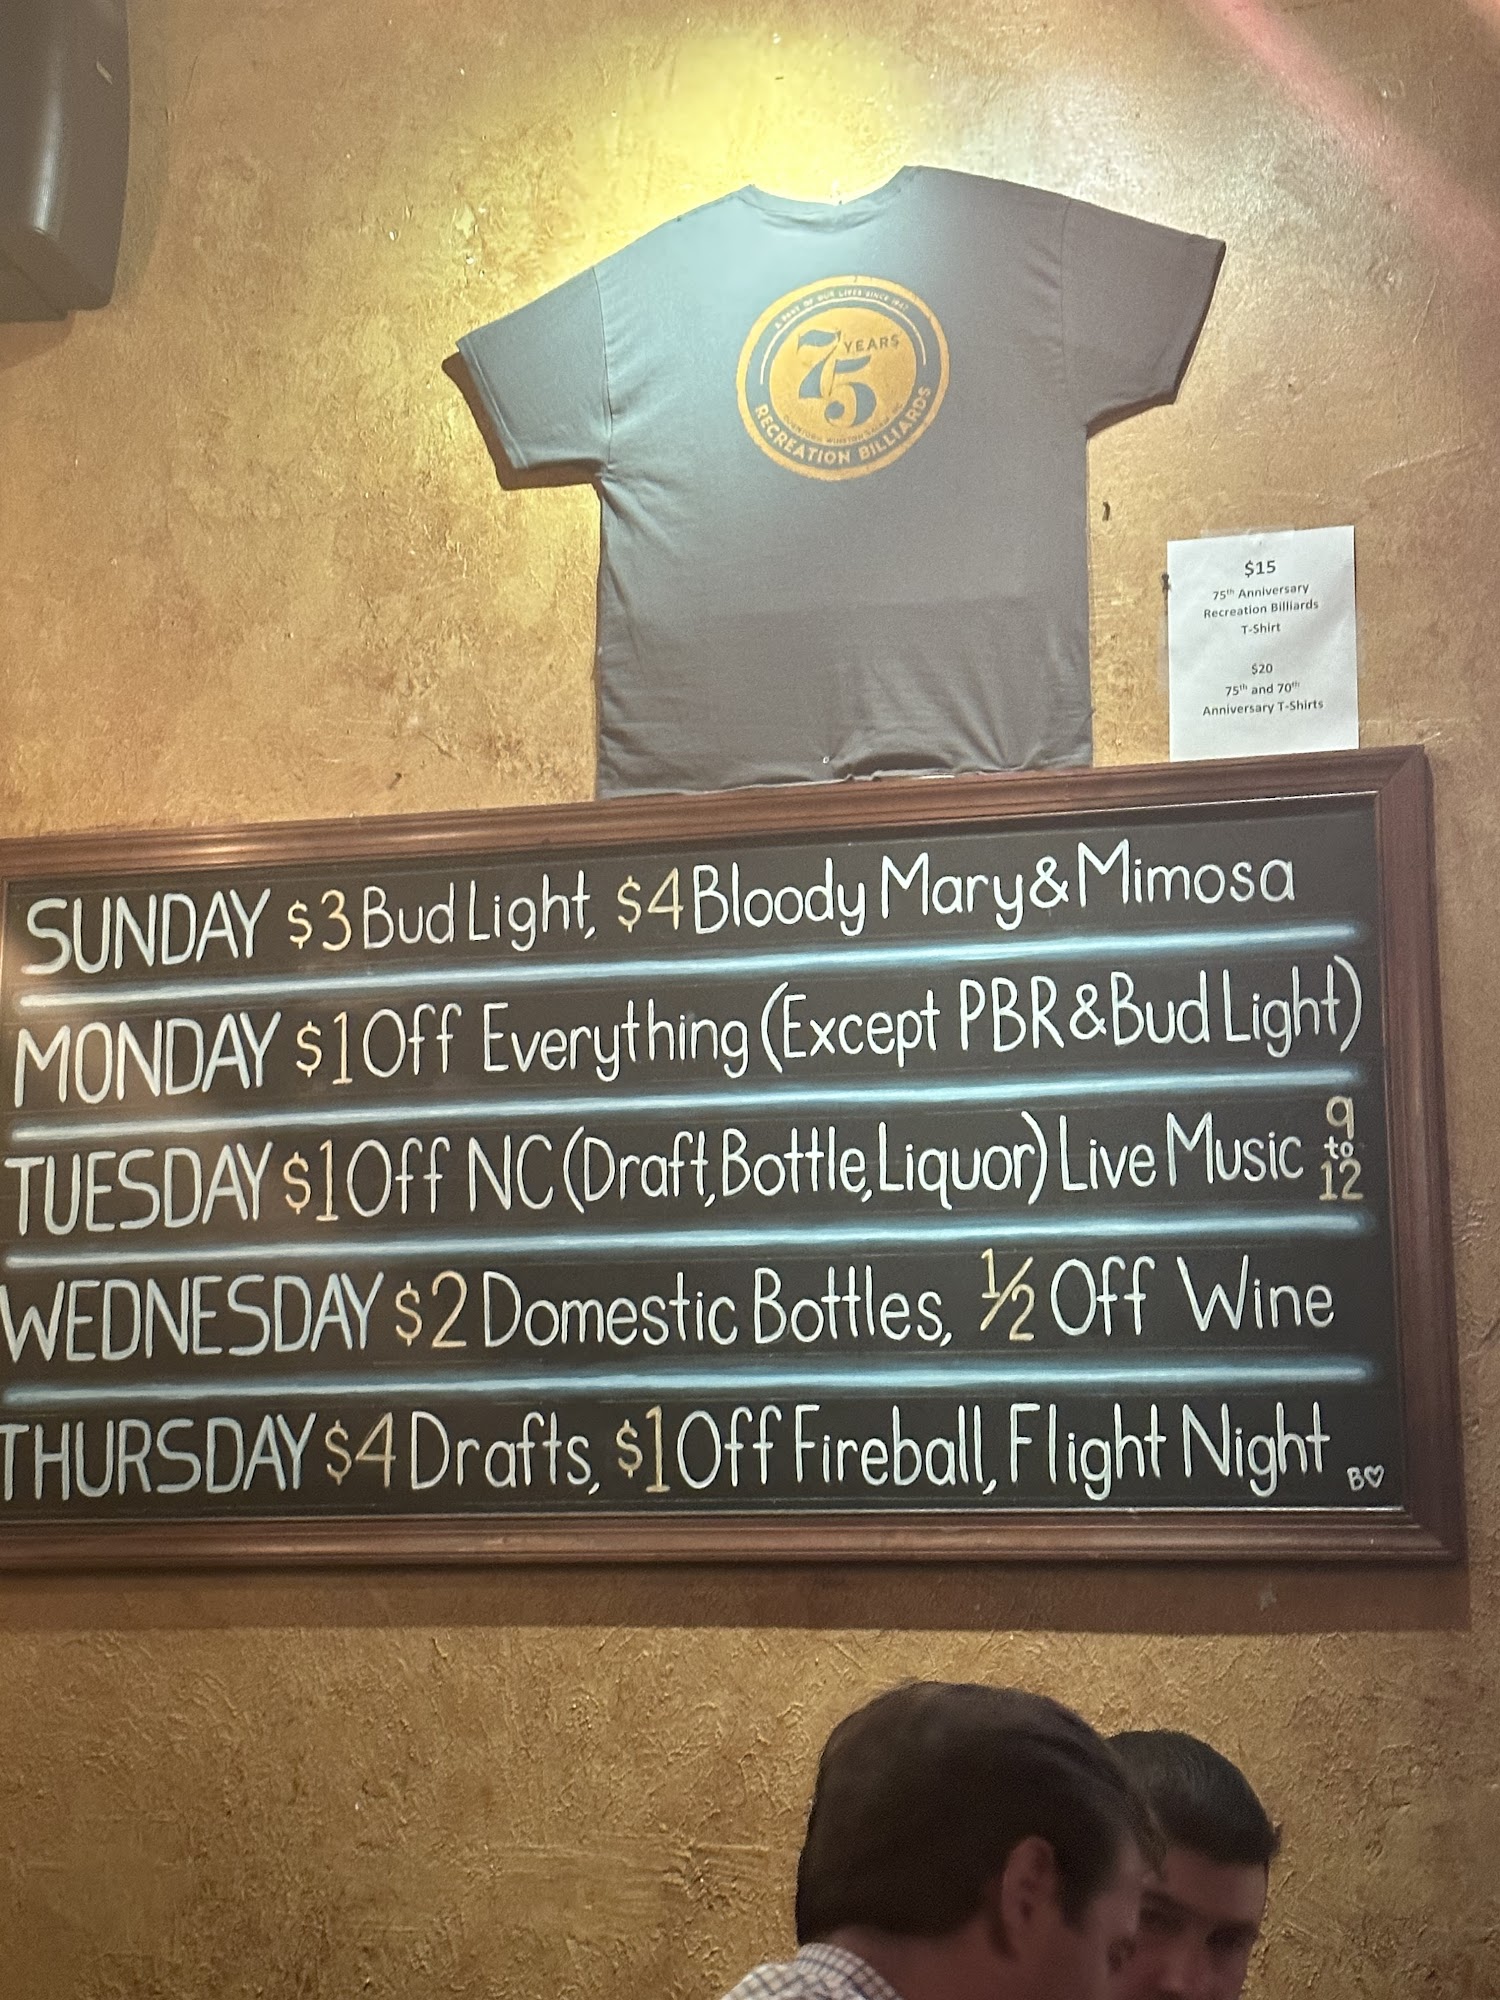 A PART OF OUR LIVES SINCE 1947
75 YEARS
DOWNTOWN WINSTON SALEM, NC
RECREATION BILLIARDS
$15
75th Anniversary
Recreation Billiards
T-Shirt
$20
75th and 70th
Anniversary T-Shirts
SUNDAY $3 Bud Light, $4 Bloody Mary & Mimosa
MONDAY $1 Off Everything (Except PBR & Bud Light)
TUESDAY $1 Off NC (Draft, Bottle, Liquor) Live Music 9 to 12
WEDNESDAY $2 Domestic Bottles, ½ Off Wine
THURSDAY $4 Drafts, $1 Off Fireball, Flight Night
B♡